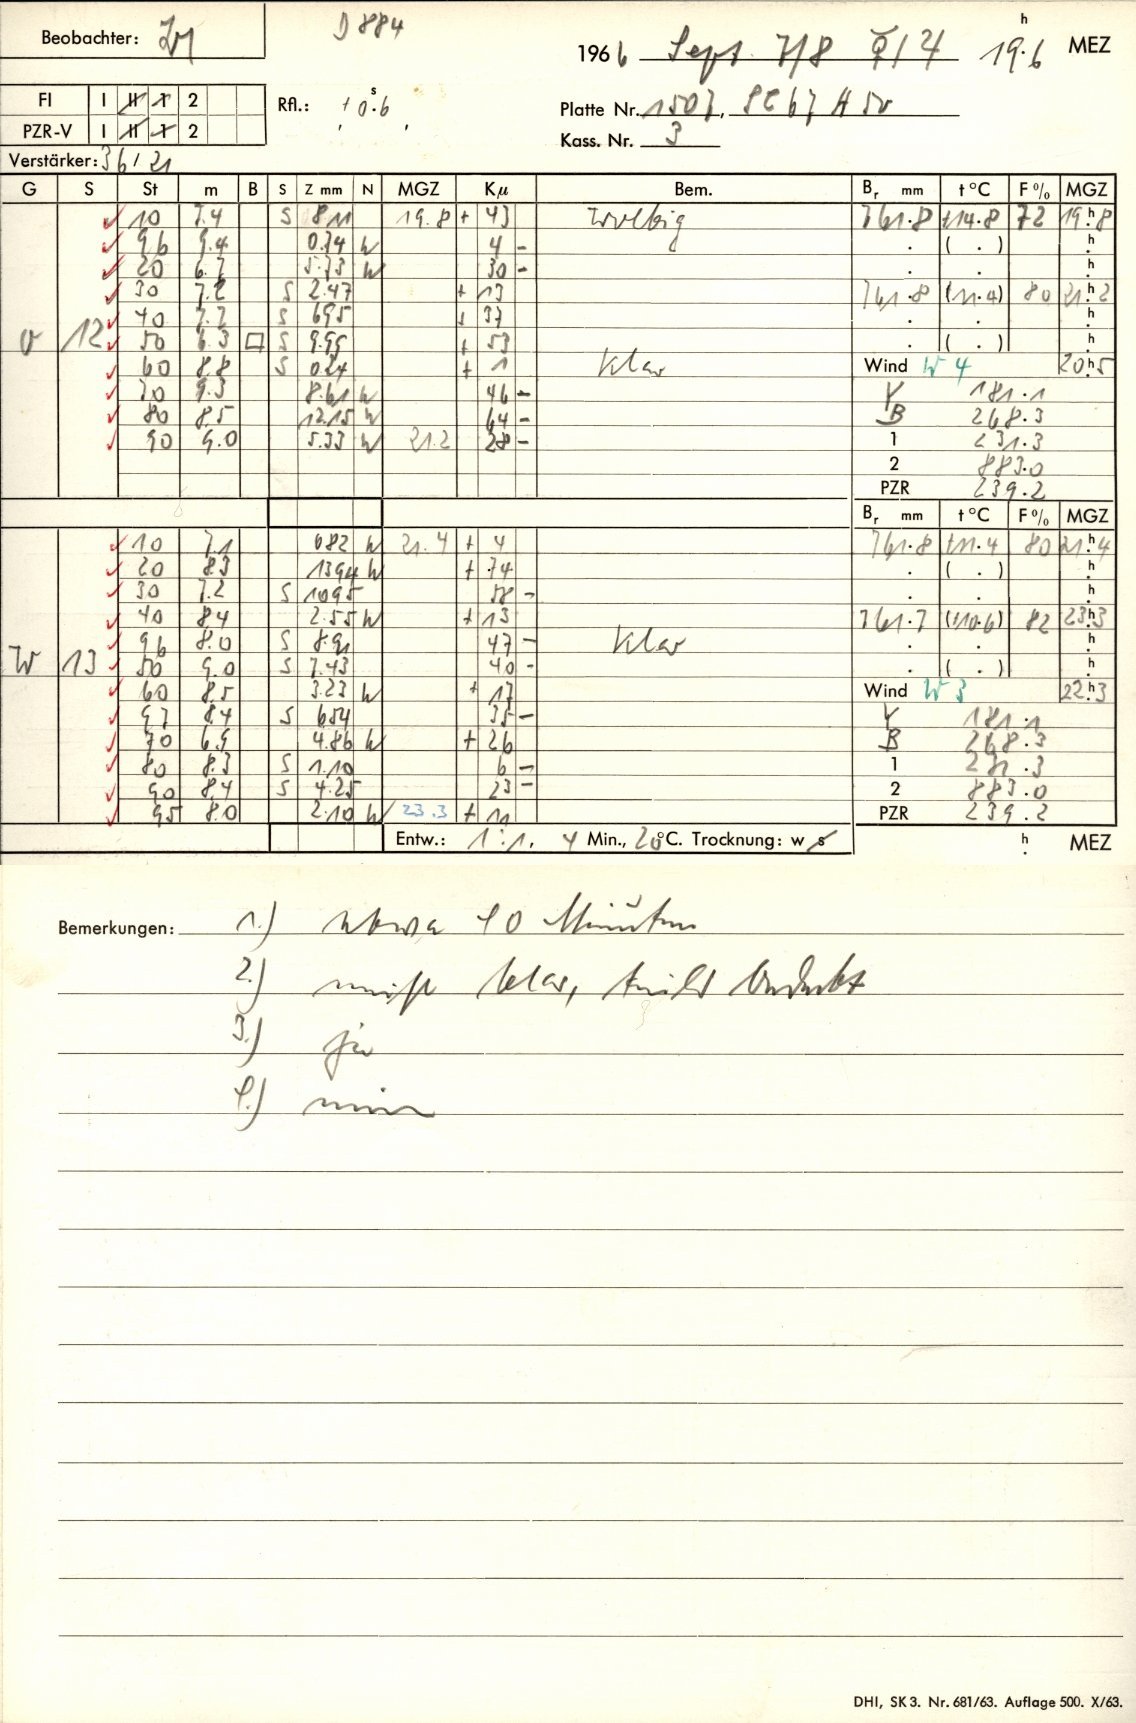 Beobachter:
D 884
1966 Sept. 7/8 19.6 h MEZ
FI I II 1 2
Rfl.: + 0.6 s
Platte Nr. 1507,
PZR-V I II 1 2
Kass. Nr. 3
Verstärker: 36/21
G S St m B S Z mm N MGZ Kμ Bem. Br mm t °C F % MGZ
10 7.4 S 8 11 19.8 + 43 wolkig 761.8 +14.8 72 19.8 h
96 9.4 0.74 W 4 - . ( . ) h
20 6.7 5.73 W 30 - . . h
30 7.2 S 2.47 + 13 761.8 (11.4) 80 21.2 h
40 7.7 S 695 + 37 . . h
O 12 50 6.3 □ S 9.95 + 53 . ( . ) h
60 8.8 S 024 + 1 klar Wind W 4 20.5 h
70 9.3 8.61 W 46 - Y 181.1
80 8.5 12.15 W 64 - B 268.3
90 9.0 5.33 W 21.2 28 - 1 231.3
2 883.0
PZR 239.2
Br mm t °C F % MGZ
10 7.1 682 W 21.4 + 4 761.8 +11.4 80 21.4 h
20 8.3 1394 W + 74 . ( . ) h
30 7.2 S 1095 58 - . . h
40 8.4 2.55 W + 13 761.7 (+10.6) 82 23.3 h
96 8.0 S 8.91 47 - klar . . h
W 13 50 9.0 S 7.43 40 - . ( . ) h
60 8.5 3.23 W + 17 Wind W 3 22.3 h
97 8.4 S 654 35 - Y 181.1
70 6.9 4.86 W + 26 B 268.3
80 8.3 S 1.10 6 - 1 231.3
90 8.4 S 4.25 23 - 2 883.0
95 8.0 2.10 W 23.3 + 11 PZR 239.2
Entw.: 1:1, 4 Min., 20 °C. Trocknung: w s h . MEZ
Bemerkungen: 1.) etwa 40 Minuten
2.) meist klar, teils bedeckt
3.) ja
4.) nein
DHI, SK 3. Nr. 681/63. Auflage 500. X/63.